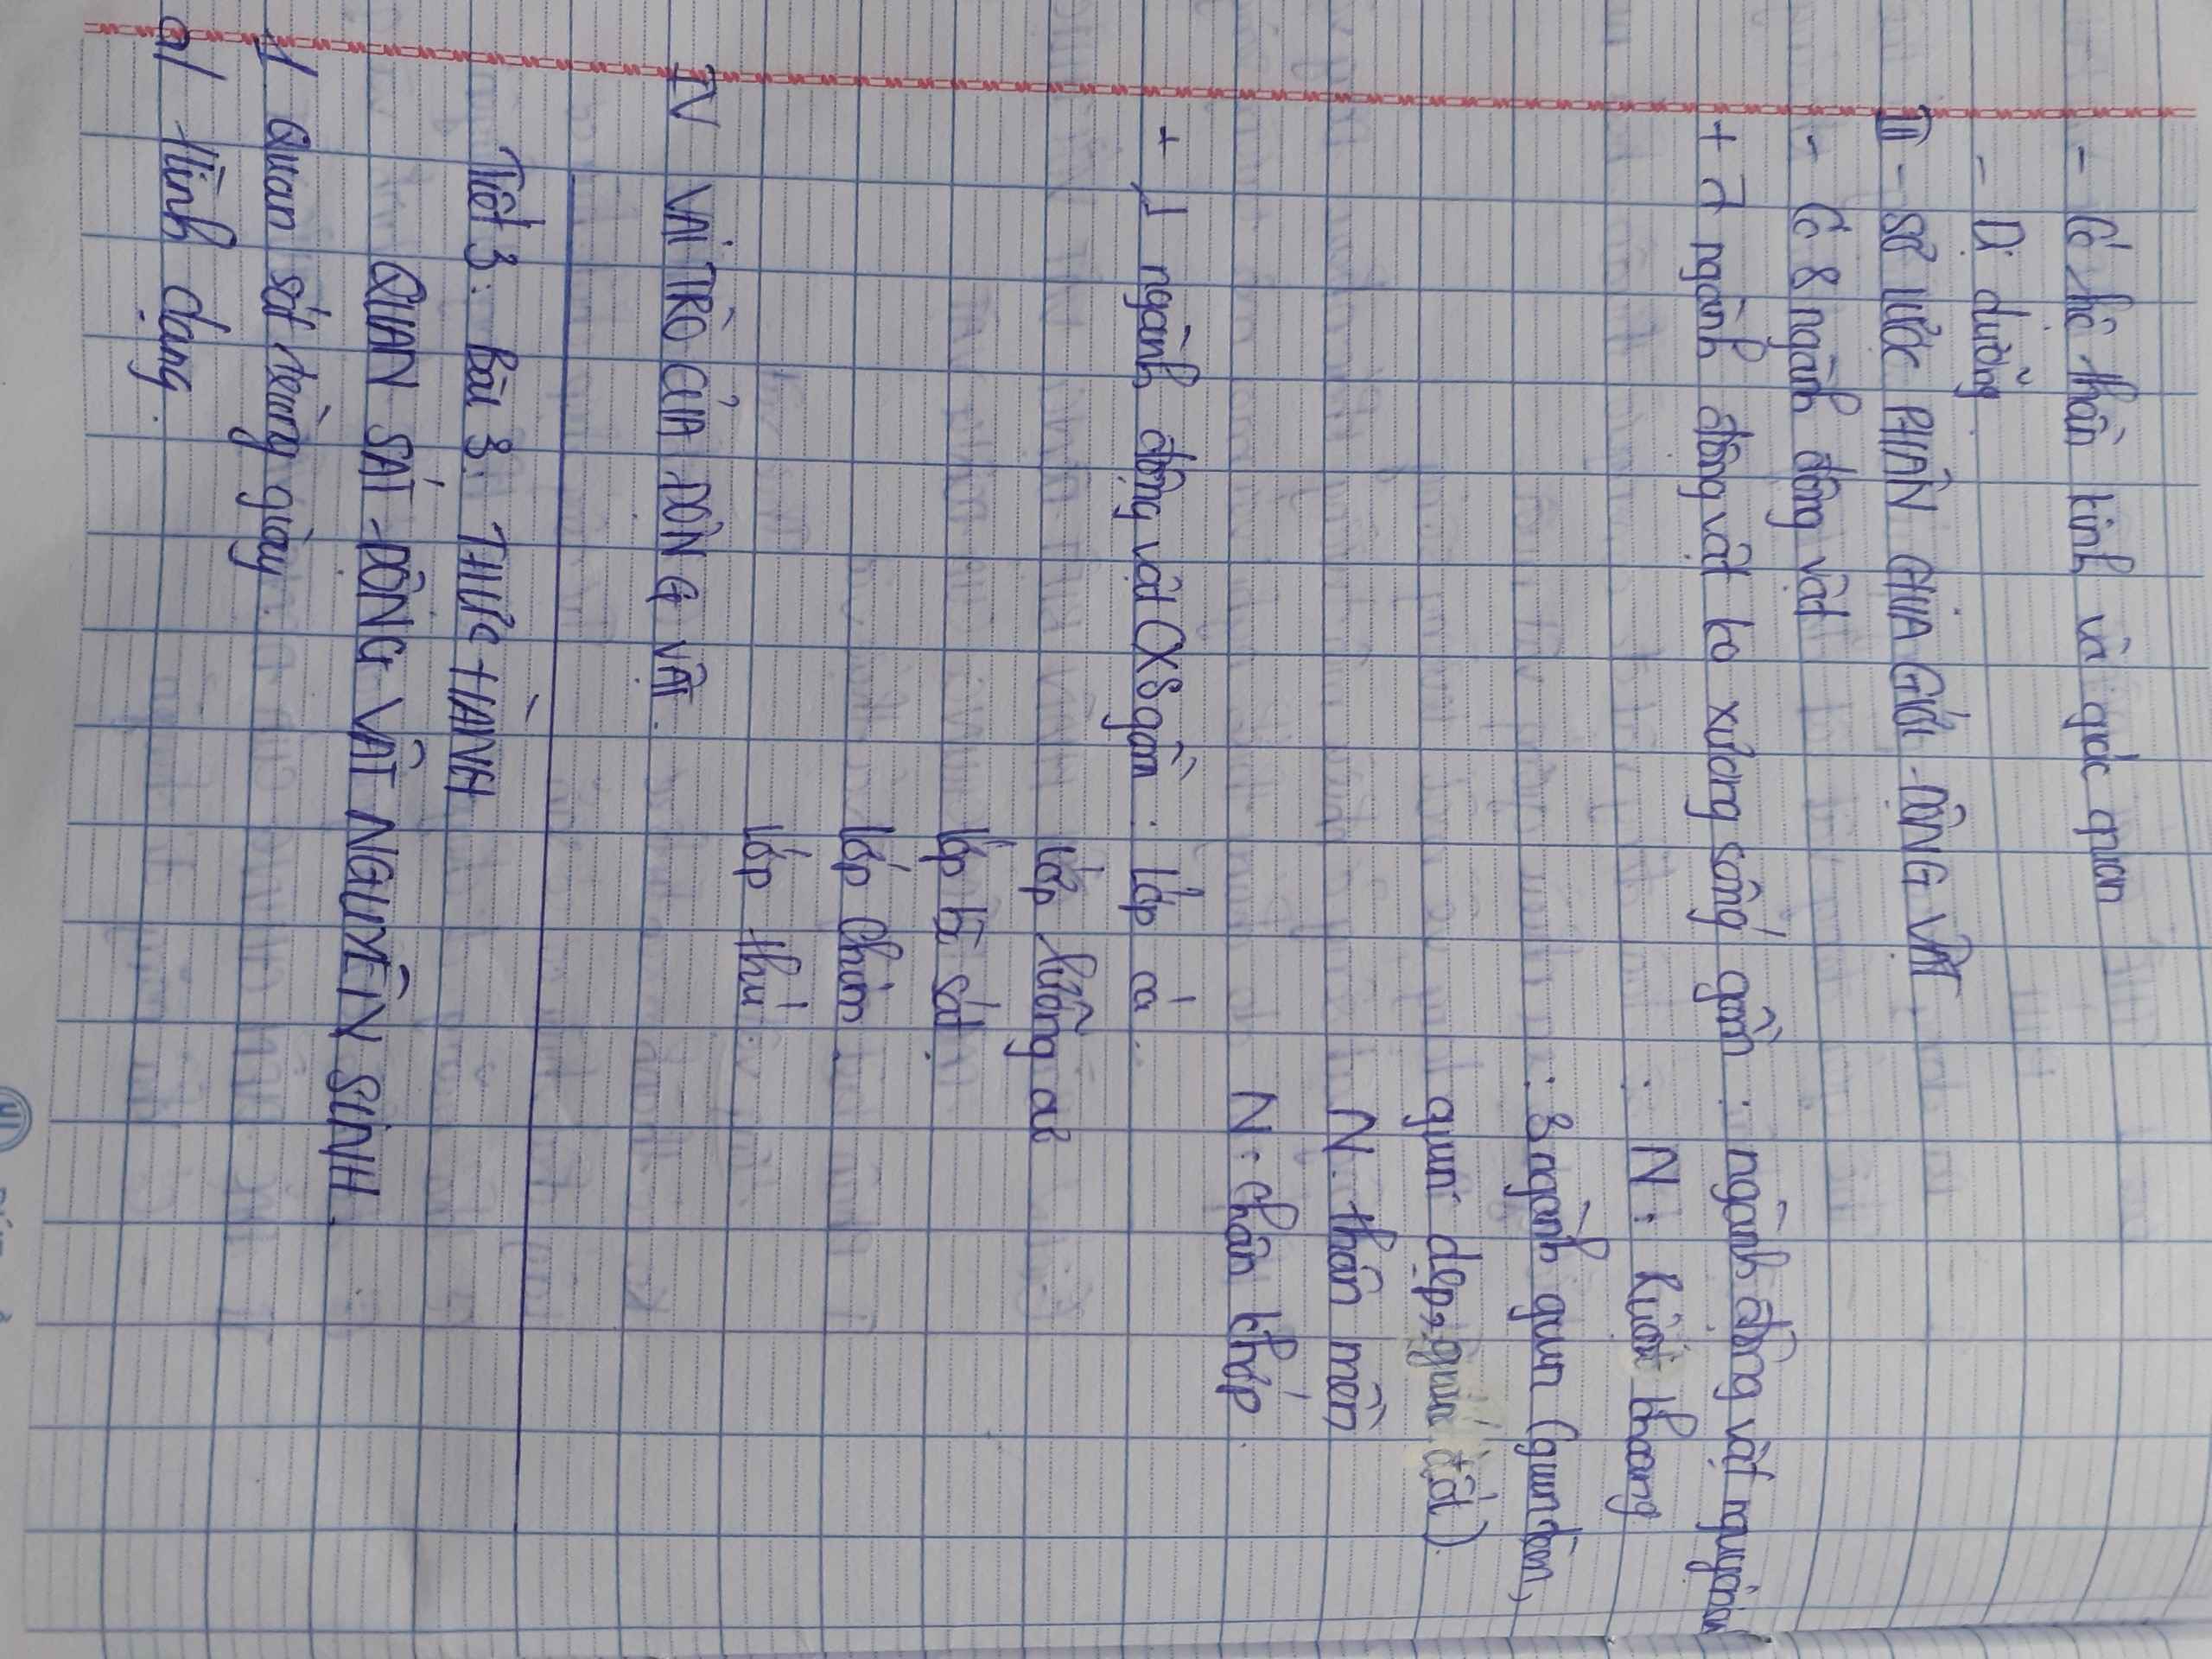 - Có hệ thần kinh và giác quan
- Dị dưỡng
III - SƠ LƯỢC PHÂN CHIA GIỚI ĐỘNG VẬT.
- Có 8 ngành động vật
+ 7 ngành động vật ko xương sống gồm : ngành động vật nguyên
: N : Ruột khoang
: 3 ngành giun (giun tròn,
giun dẹp, giun đốt)
N. thân mềm
N : chân khớp.
+ 1 ngành động vật CXS gồm : lớp cá.
lớp lưỡng cư
lớp bò sát.
lớp chim.
lớp thú.
IV VAI TRÒ CỦA ĐỘNG VẬT.
Tiết 3: Bài 3: THỰC HÀNH
QUAN SÁT ĐỘNG VẬT NGUYÊN SINH.
1/ Quan sát trùng giày.
a/ Hình dạng.